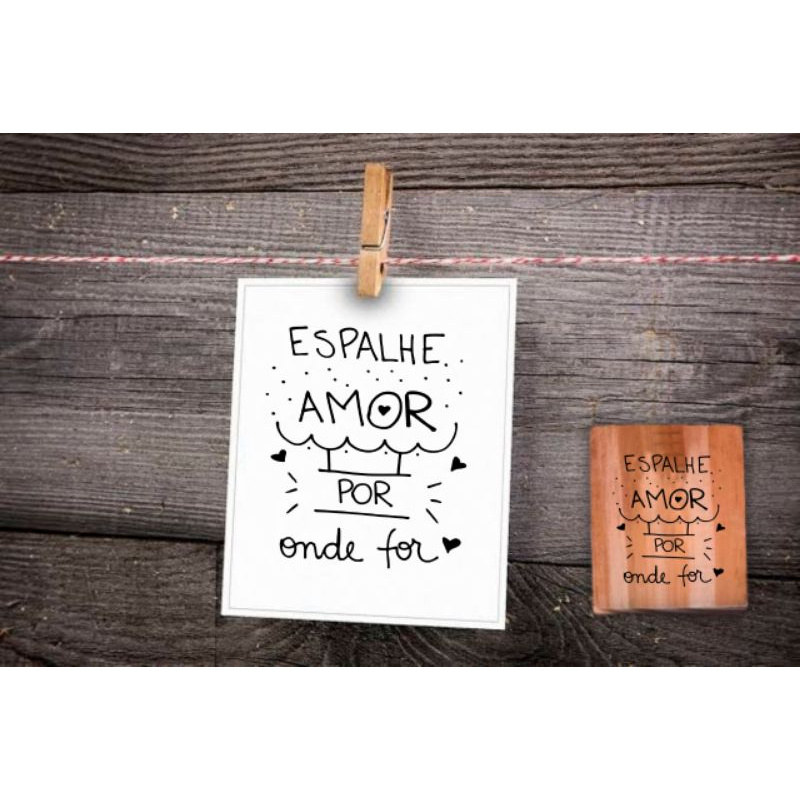 ESPALHE
AMOR
POR
onde for
ESPALHE
AMOR
POR
onde for